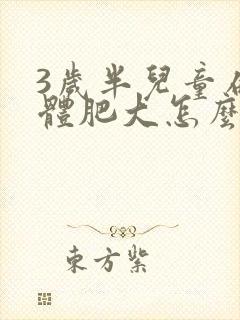 3歲半兒童
體肥大怎麼
東方紫